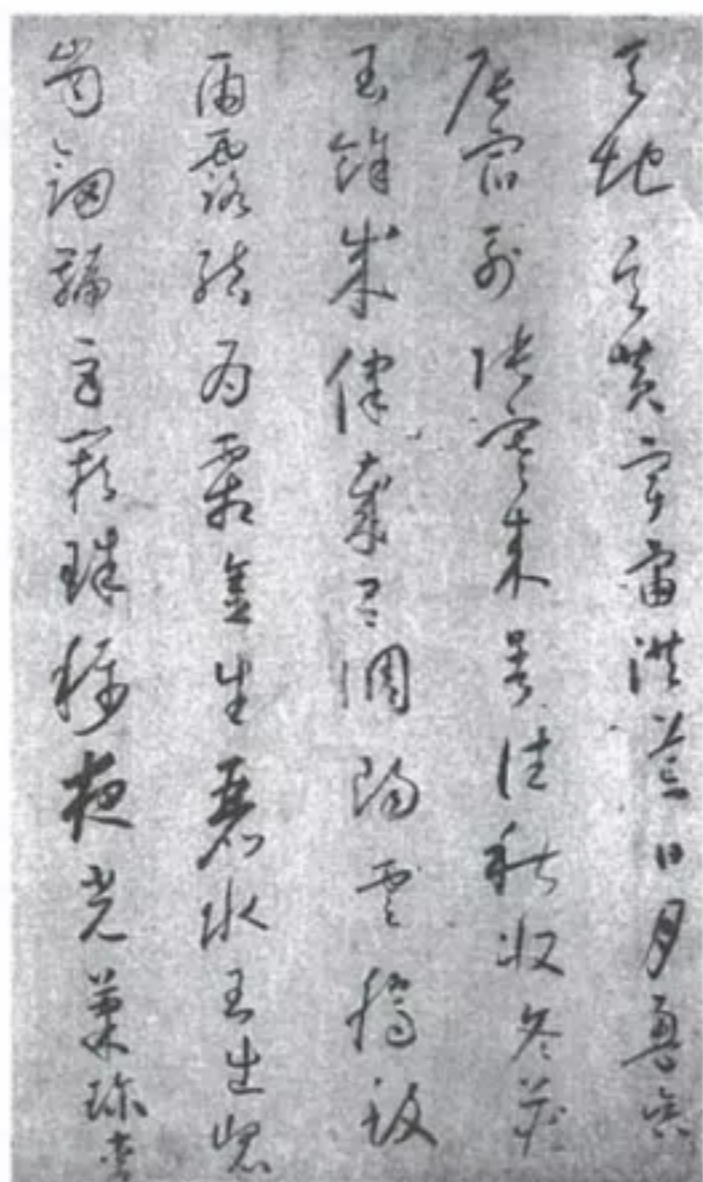 天地玄黃宇宙洪荒日月盈昃
辰宿列張寒來暑往秋收冬藏
閏餘成律歲呂調陽雲騰致
雨露結為霜金生麗水玉出崑
崗劍號巨闕珠稱夜光菓珍李